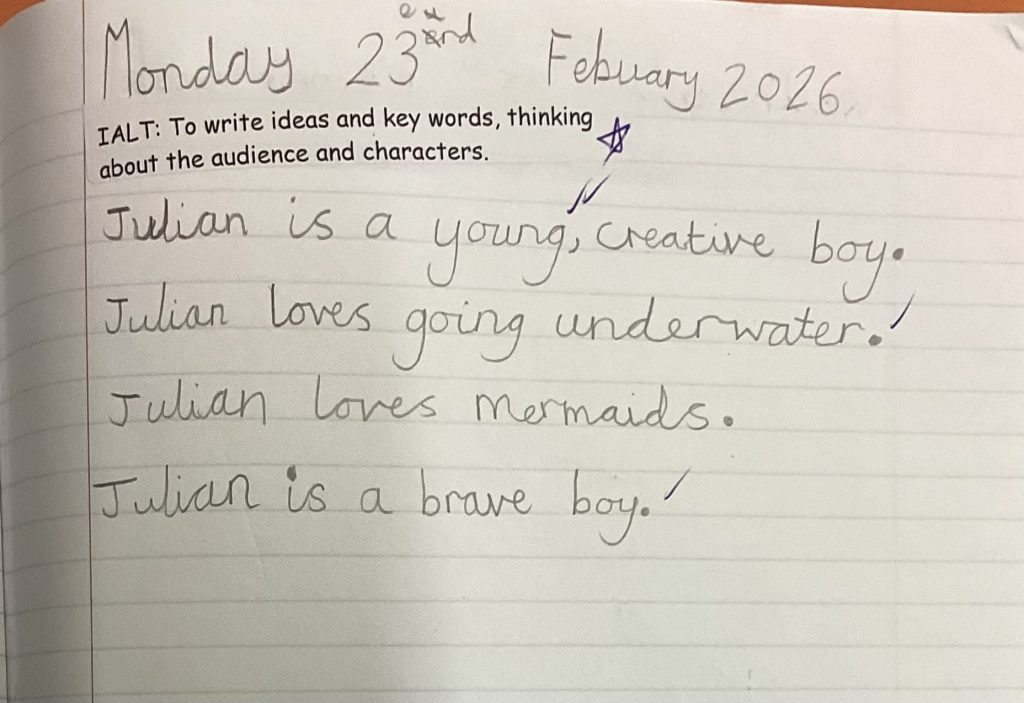 Monday 23rd Febuary 2026
IALT: To write ideas and key words, thinking
about the audience and characters.
Julian is a young, creative boy.
Julian loves going underwater.
Julian loves mermaids.
Julian is a brave boy.